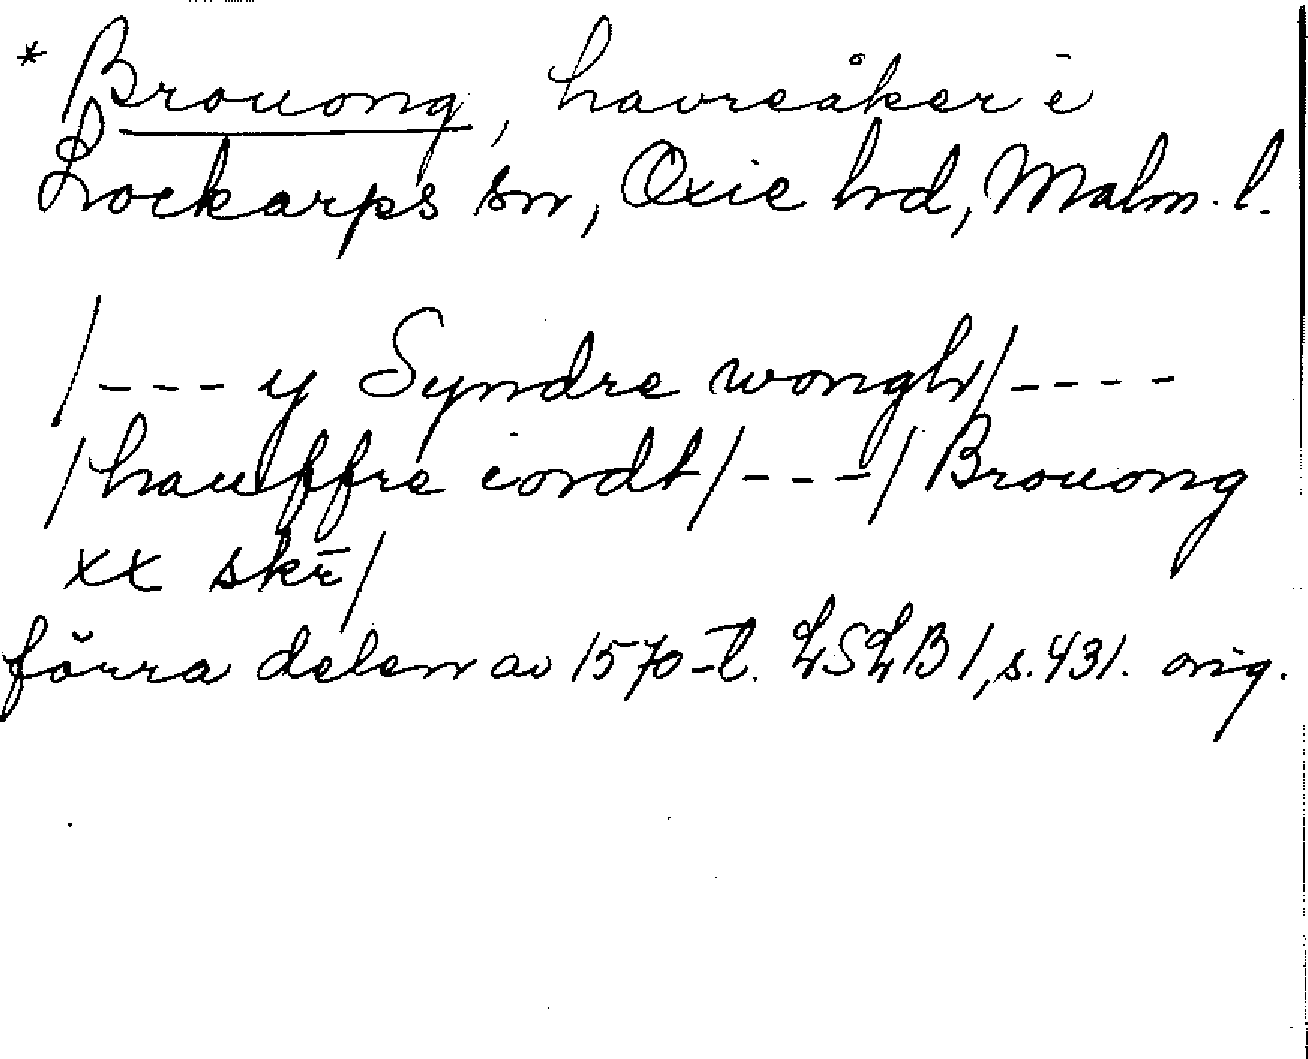 * Brouong, havreåker i
Lockarps sn, Oxie hd, Malm. l.
/--- y Syndre wongh/----
/hauffre iordt/---/Brouong
xx skr̄/
förra delen av 1570-t. LSLB 1, s. 431. orig.